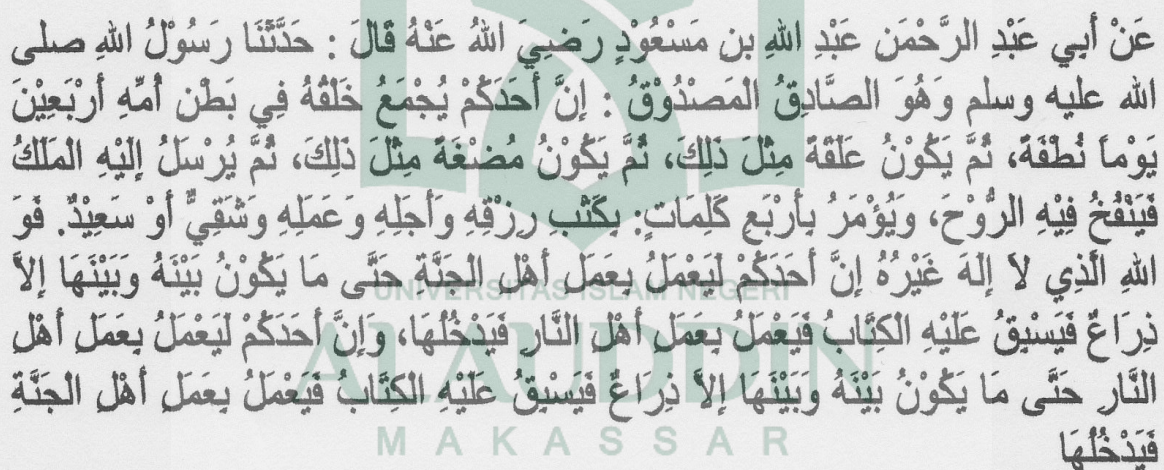 عَنْ أَبِي عَبْدِ الرَّحْمَنِ عَبْدِ اللهِ بنِ مَسْعُوْدٍ رَضِيَ اللهُ عَنْهُ قَالَ : حَدَّثَنَا رَسُوْلُ اللهِ صلى
الله عليه وسلم وَهُوَ الصَّادِقُ الْمَصْدُوْقُ : إِنَّ أَحَدَكُمْ يُجْمَعُ خَلْقُهُ فِي بَطْنِ أُمِّهِ أَرْبَعِيْنَ
يَوْماً نُطْفَةً، ثُمَّ يَكُوْنُ عَلَقَةً مِثْلَ ذَلِكَ، ثُمَّ يَكُوْنُ مُضْغَةً مِثْلَ ذَلِكَ، ثُمَّ يُرْسَلُ إِلَيْهِ الْمَلَكُ
فَيَنْفُخُ فِيْهِ الرُّوْحَ، وَيُؤْمَرُ بِأَرْبَعِ كَلِمَاتٍ: بِكَتْبِ رِزْقِهِ وَأَجَلِهِ وَعَمَلِهِ وَشَقِيٌّ أَوْ سَعِيْدٌ. فَوَ
اللهِ الَّذِي لاَ إِلَهَ غَيْرُهُ إِنَّ أَحَدَكُمْ لَيَعْمَلُ بِعَمَلِ أَهْلِ الْجَنَّةِ حَتَّى مَا يَكُوْنُ بَيْنَهُ وَبَيْنَهَا إِلاَّ
UNIVERSITAS ISLAM NEGERI
ذِرَاعٌ فَيَسْبِقُ عَلَيْهِ الْكِتَابُ فَيَعْمَلُ بِعَمَلِ أَهْلِ النَّارِ فَيَدْخُلُهَا، وَإِنَّ أَحَدَكُمْ لَيَعْمَلُ بِعَمَلِ أَهْلِ
ALAUDDIN
النَّارِ حَتَّى مَا يَكُوْنُ بَيْنَهُ وَبَيْنَهَا إِلاَّ ذِرَاعٌ فَيَسْبِقُ عَلَيْهِ الْكِتَابُ فَيَعْمَلُ بِعَمَلِ أَهْلِ الْجَنَّةِ
MAKASSAR
فَيَدْخُلُهَا